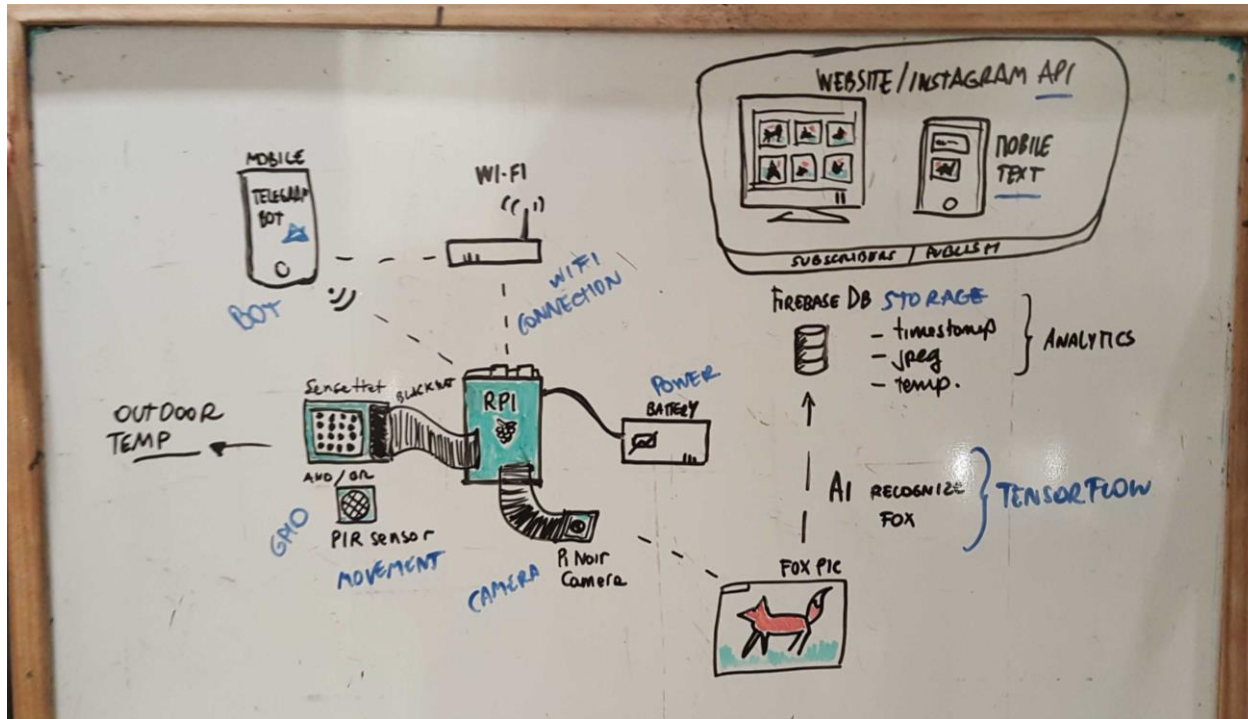 WEBSITE/INSTAGRAM API
MOBILE
TEXT
SUBSCRIBERS / PUBLISH
MOBILE
TELEGRAM
BOT
BOT
WI-FI
WIFI
CONNECTION
FIREBASE DB STORAGE
- timestamp
- jpeg
- temp.
ANALYTICS
OUTDOOR
TEMP
Sense Hat
RPI
POWER
BATTERY
AND/OR
GPIO
PIR sensor
MOVEMENT
CAMERA
Pi Noir
Camera
AI RECOGNIZE
FOX
TENSORFLOW
FOX PIC